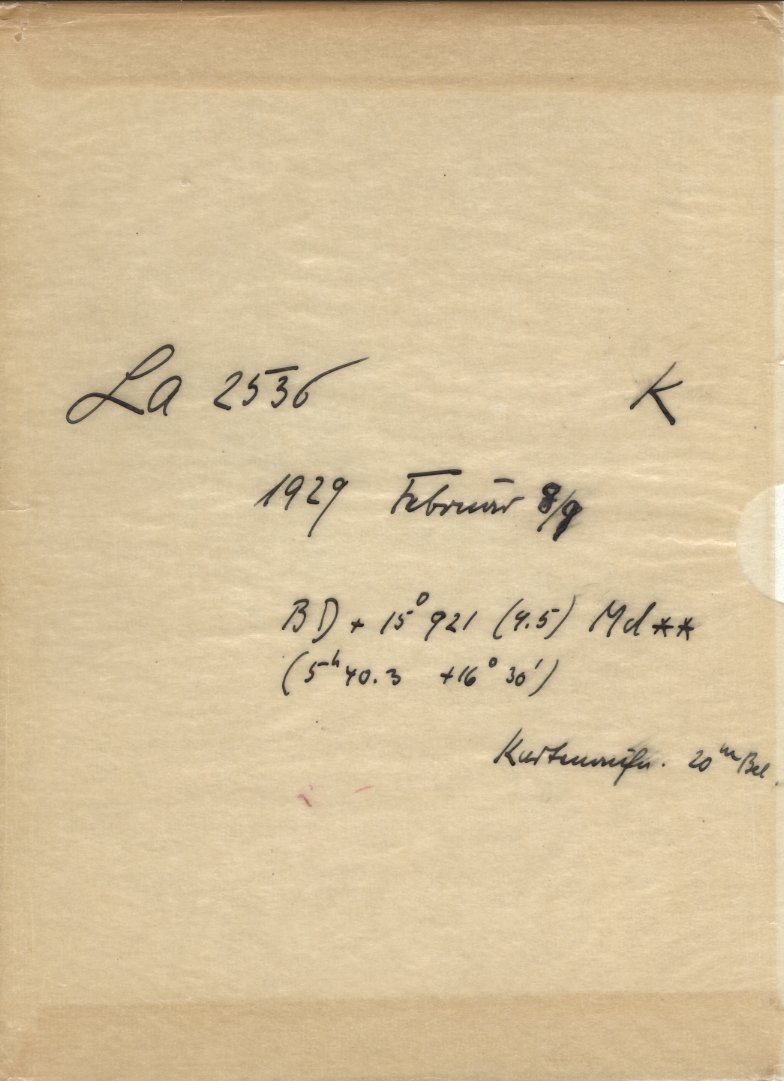 La 2536 K
1929 Februar 8/9
BD + 15° 921 (9.5) Md **
(5ʰ 40.3 +16° 30')
Kartenaufn. 20ᵐ Bel.